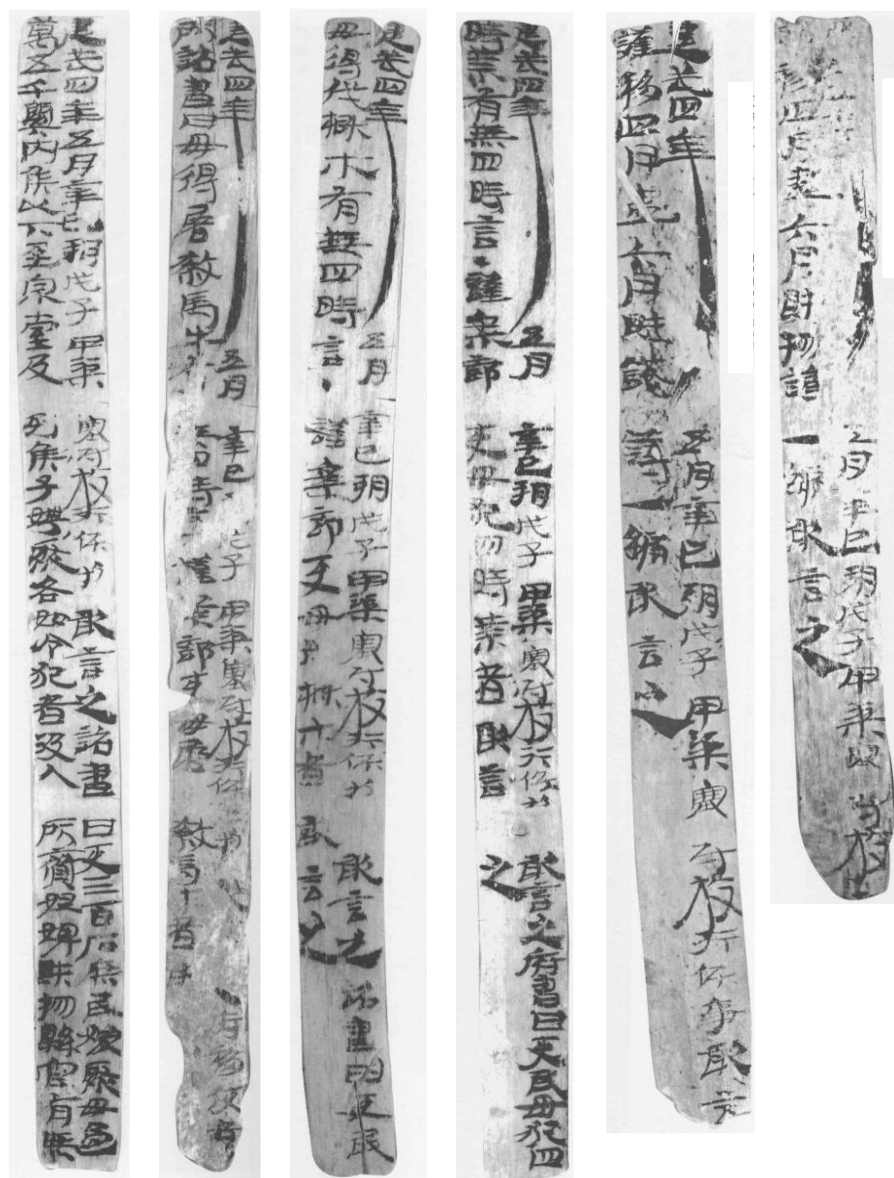 建武四年五月辛巳朔戊子甲渠塞尉放行候事敢言之詔書曰吏三百石庶民嫁娶毋過
萬五千關內侯以下至宗室及列侯子娉娶各如令犯者沒入所齎奴婢財物縣官有無
建武四年五月辛巳朔戊子甲渠塞尉放行候事
府詔書曰毋得屠殺馬牛有無四時言謹案部吏毋屠殺馬牛者敢
建武四年五月辛巳朔戊子甲渠塞尉放行候事敢言之詔書曰吏民
毋得伐樹木有無四時言●謹案部吏毋伐樹木者敢言之
建武四年五月辛巳朔戊子甲渠塞尉放行候事敢言之府書曰吏民毋犯四
時禁有無四時言●謹案部吏毋犯四時禁者敢言之
建武四年五月辛巳朔戊子甲渠塞尉放行候事敢言
謹移四月盡六月賦錢簿一編敢言之
五月辛巳朔戊子甲渠塞尉放行
移四月盡六月財物簿一編敢言之